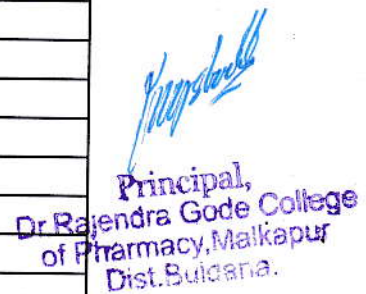 Principal,
Dr.Rajendra Gode College
of Pharmacy,Malkapur
Dist.Buldana.